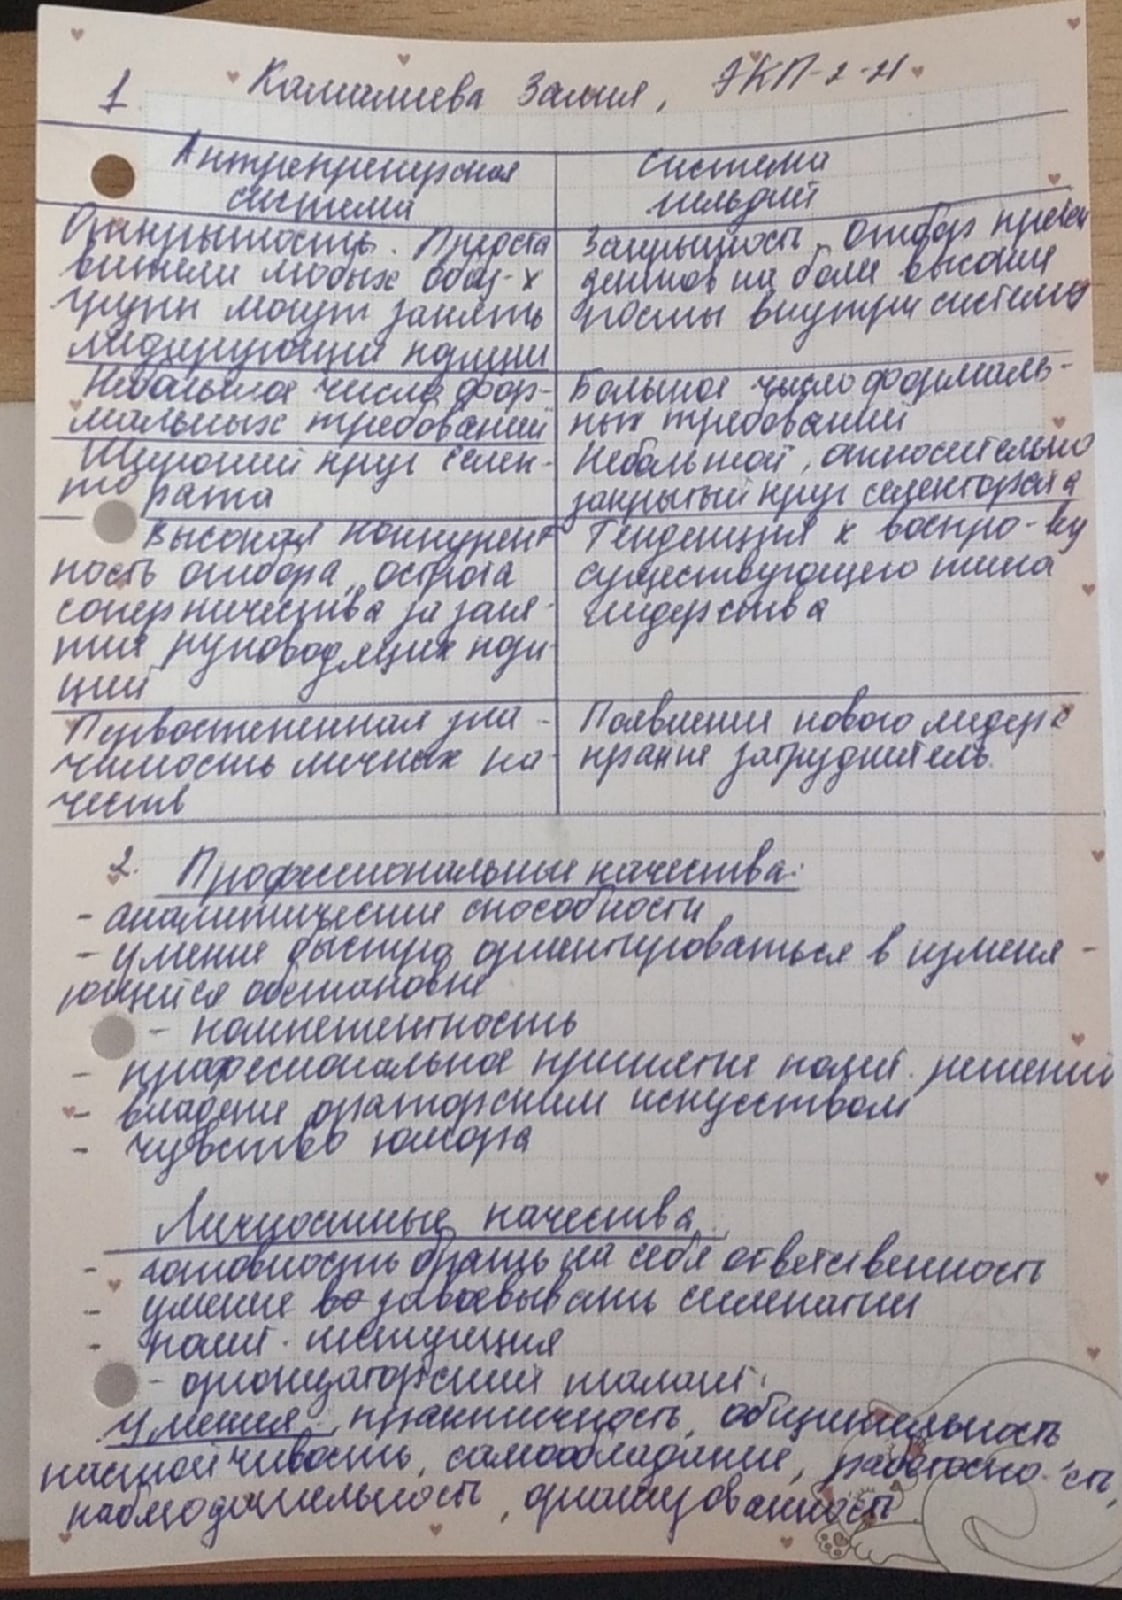 Камалиева Залия, ЭКП-2-21
1
Антрепренерская
система
Система
гильдий
Открытость. Предста
вители любых общ-х
групп могут занять
лидирующие позиции
Закрытость. Отбор претен
дентов на более высокие
посты внутри системы
Небольшое число фор-
мальных требований
Большое число формаль-
ных требований
Широкий круг селек-
то рата
Небольшой, относительно
закрытый круг селектората
Высокая конкурент
ность отбора, острота
соперничества за заня-
тие руководящих пози-
ций
Тенденция к воспро-ву
существующего типа
лидерства
Первостепенная зна-
чимость личных ка-
честв
Появление нового лидера
крайне затруднитель.
2. Профессиональные качества:
- аналитические способности
- умение быстро ориентироваться в изменя-
ющейся обстановке
- компетентность
- професиональное принятие полит. решений
- владение ораторским искусством
- чувство юмора
Личностные качества
- готовность брать на себя ответственность
- умение завоевывать симпатии
- полит. интуиция
- организаторский талант.
Умения: практичность, общительность
настойчивость, самообладание, работоспо-сть,
наблюдательность, организованность